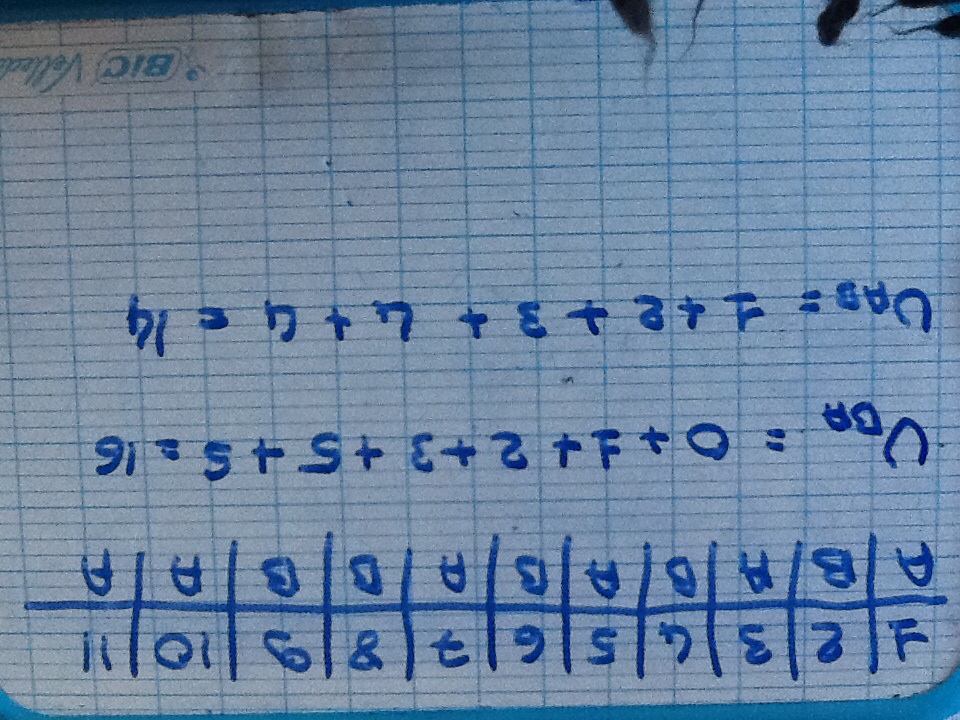 1 | 2 | 3 | 4 | 5 | 6 | 7 | 8 | 9 | 10 | 11
A | B | A | B | A | B | A | B | B | A | A
U_BA = 0 + 1 + 2 + 3 + 5 + 5 = 16
U_AB = 1 + 2 + 3 + 4 + 4 = 14
BIC